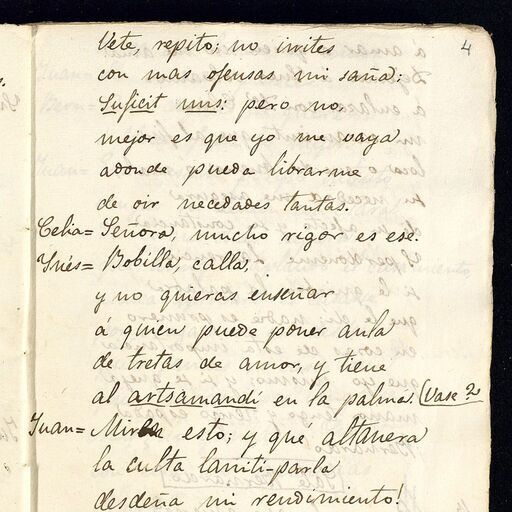 4
Vete, repito; no invites
con mas ofensas mi saña;
Suficit unus: pero no,
mejor es que yo me vaya
adonde pueda librarme
de oir necedades tantas.
Celia= Señora, mucho rigor es ese.
Ynés= Bobilla, calla,
y no quieras enseñar
á quien puede poner aula
de tretas de amor, y tiene
al artsamandi en la palma. (Vase
Juan= Miren esto; y qué altanera
la culta laniti-parla
desdeña mi rendimiento!